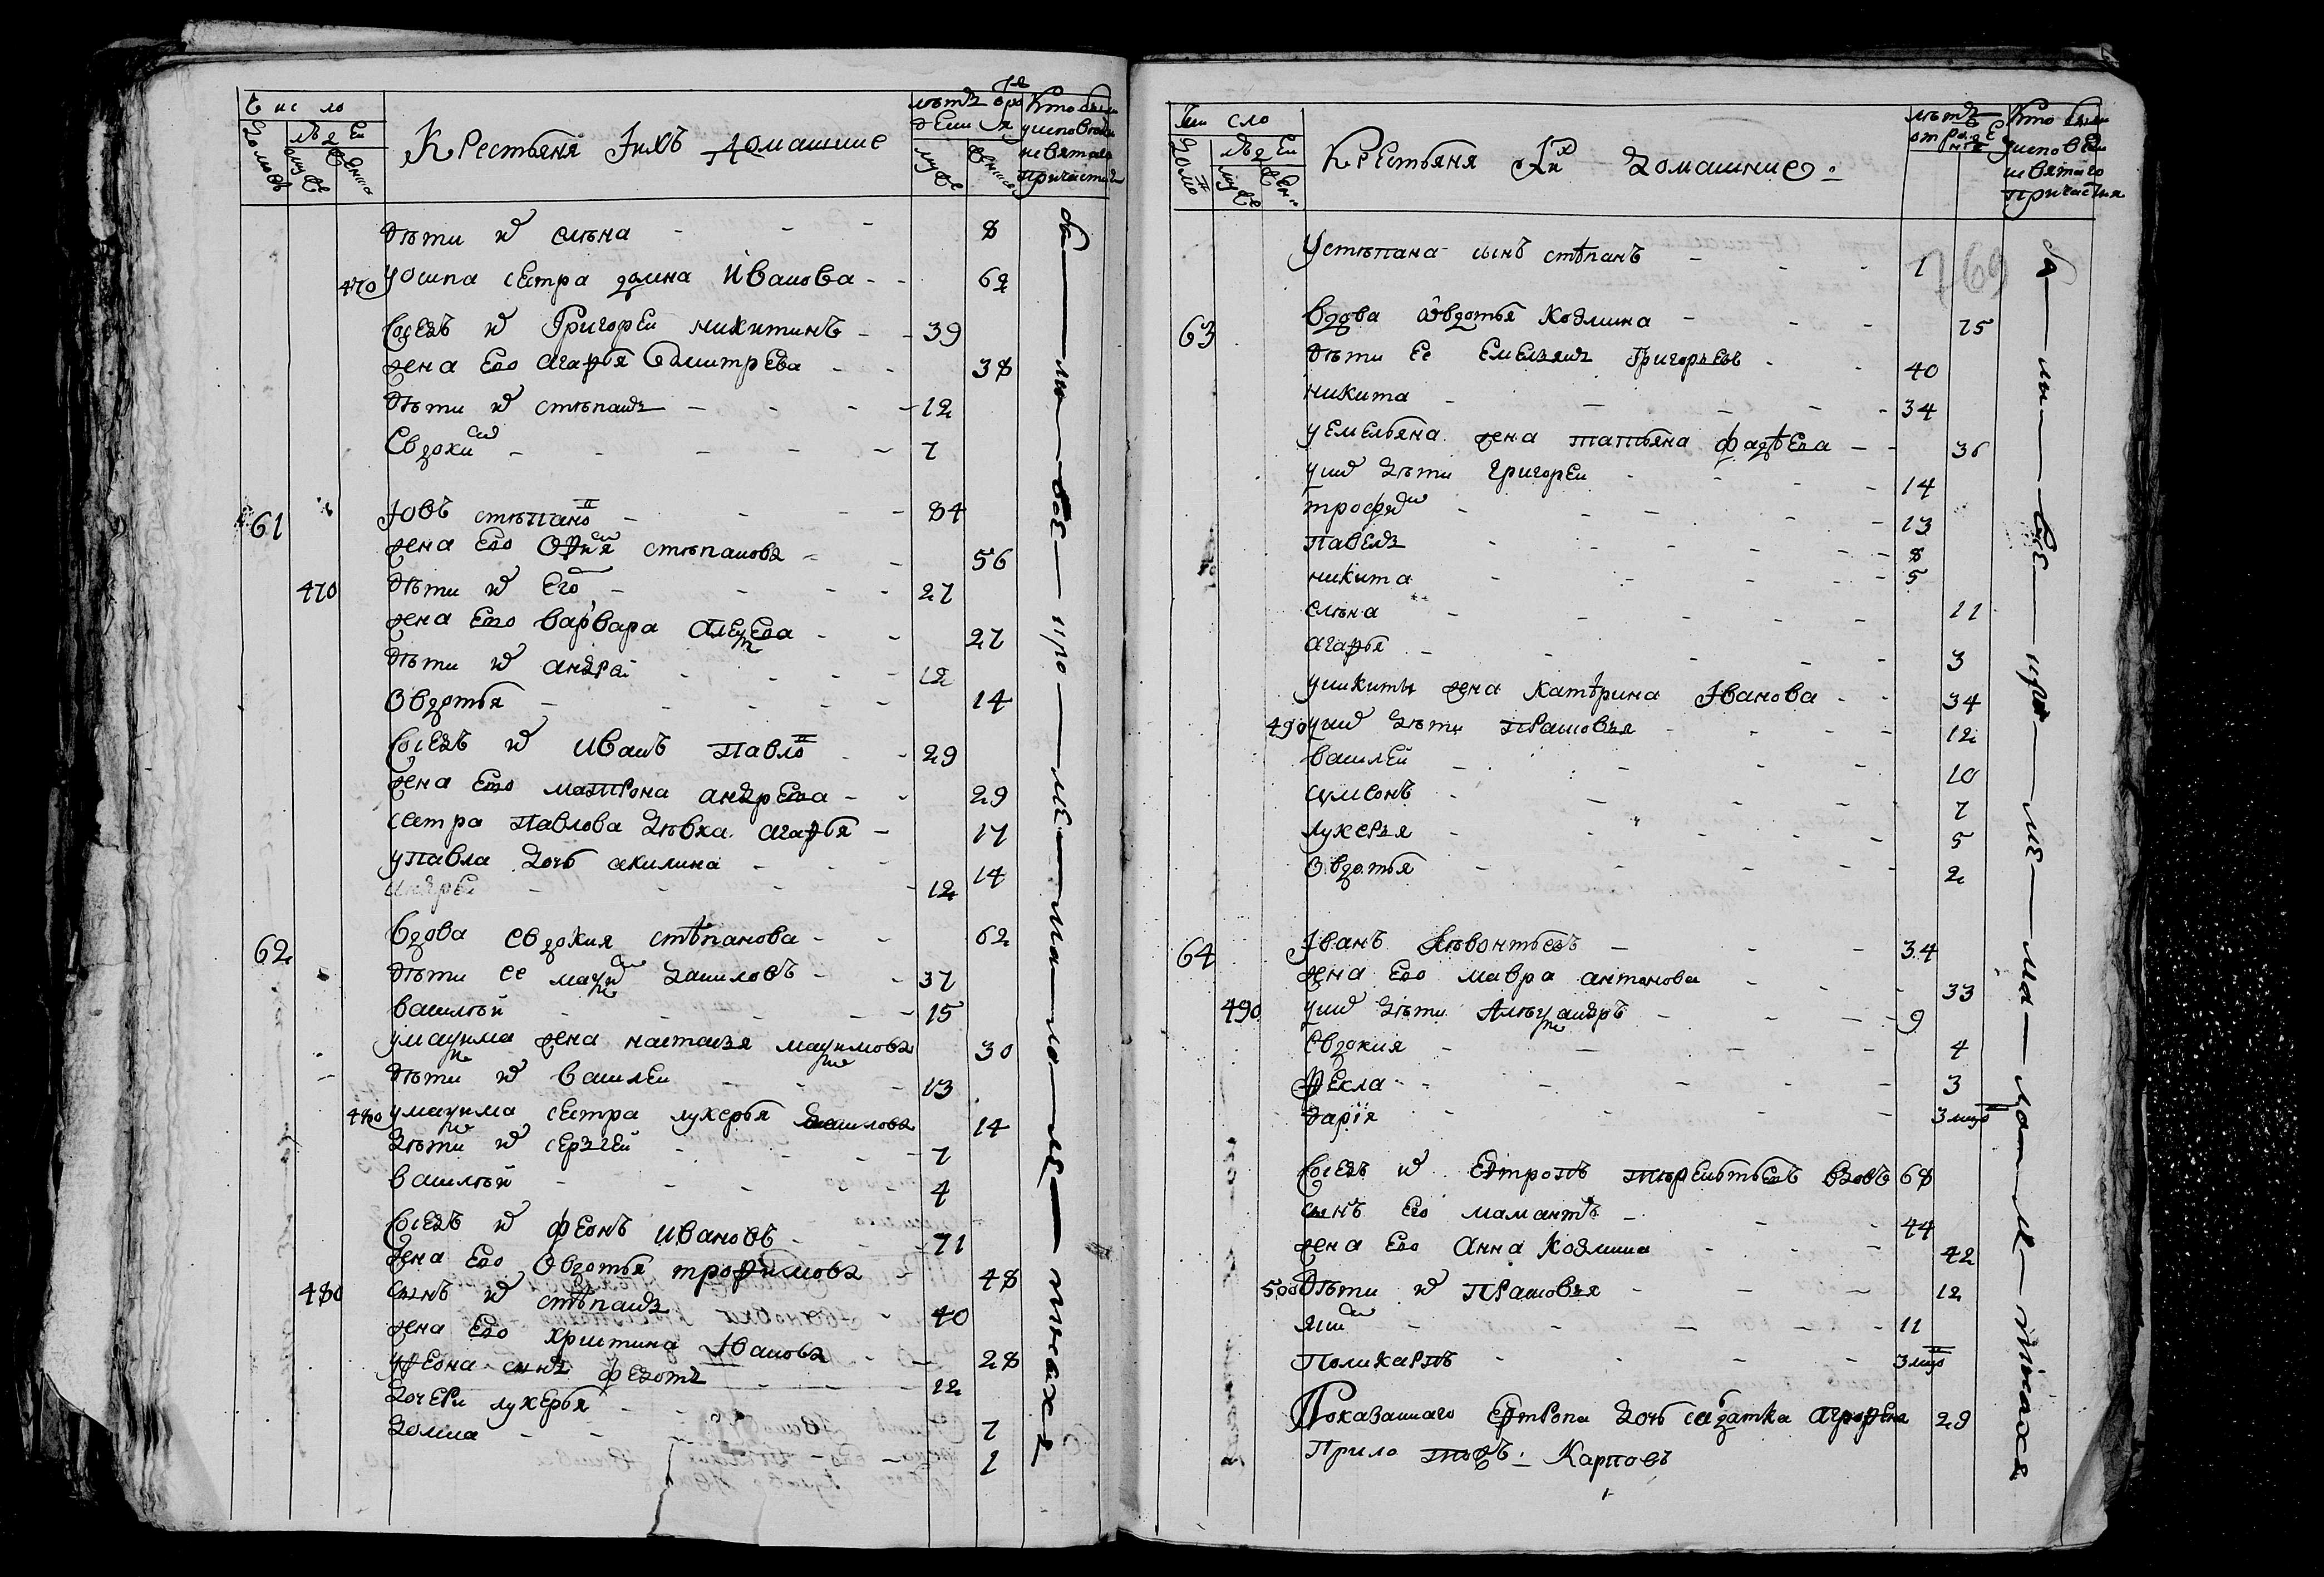 Число
домовъ
людей
муже
женска
Крестьяня Іихъ домашние
лѣтъ
Кто были
у исповѣди
и святаго
Причастия
дѣти их елѣна - - - 8
470 у осипа сестра домна иванова - - 62
Соседъ их Григореи никитинъ - - 39
жена ево агафья дмитрева - - 38
дѣти их стѣпанъ - - - - 12
Евдокимъ - - - - - 7
61 Іовъ стѣпановъ - - - - 84
жена ево стѣпанова - - 56
470 дѣти их - - - - 27
жена ево варвара алексеева - - 27
дѣти их андрей - - - - 12
Овдотья - - - - - 14
Соседъ их иванъ Павловъ - - 29
жена ево матрона андреева - - 29
сестра павлова дѣвка агафья - 17
у павла дочь акилина - - - 14
андреи - - - - - 12
62 Вдова евдокия стѣпанова - - 62
дѣти ее максимъ даниловъ - - 37
василѣй - - - - - 15
у максима жена настасья максимова 30
дѣти их василеи - - - 13
480 у максима сестра лукерья данилова 14
дѣти их сергей - - - - 7
василѣй - - - - - 4
Соседъ их феонъ ивановъ - - - 71
жена ево Овдотья трофимова - 48
480 сынъ их стѣпанъ - 40
жена ево христина Іванова - - 28
у феона сынъ федотъ - - - 12
дочери лукерья - - - 7
домна - - - 2
бы—ли—все—ипо—ме—ма—ло—ле—тныхъ
Число
домо
людей
мужe
жен
Крестьяня Іихъ домашние
лѣтъ
отрожде
ния
Кто были
у исповеди
и святаго
причастия
769
У стѣпана сынъ стѣпанъ - - - 1
63 Вдова овдотья козмина - - - 75
дѣти ее Емельянъ Григорьевъ - - 40
никита - - - - - 34
у емельяна жена татьяна фадѣева - - 36
у них дѣти григореи - - - - 14
трофимъ - - - - - 13
павелъ - - - - - 8
никита - - - - - 5
елѣна - - - - - 11
агафья - - - - - 3
у никиты жена катѣрина Іванова - - 34
490 у них дѣти прасковья - - - - 12
василеи - - - - 10
симионъ - - - - 7
лукерья - - - - 5
Овдотья - - - - 2
64 Іванъ лѣвонтьевъ - - - 34
жена ево мавра антонова - - - 33
490 у них дѣти алѣксандръ - - - 9
Евдокия - - - - 4
фекла - - - - - 3
дарія - - - - 3 мцо
Соседъ их Ефтропъ тѣрентьевъ вдовъ 68
сынъ ево мамантъ - - - 44
жена ево анна козмина - - - 42
500 дѣти их прасковья - - - 12
якимъ - - - - - 11
поликарпъ - - - - 3 мцо
Показаннаго ефтропа дочь салдатка агрофена 29
Карповъ
бы—ли—все—ипо—ме—ма—ло—ле—тныхъ